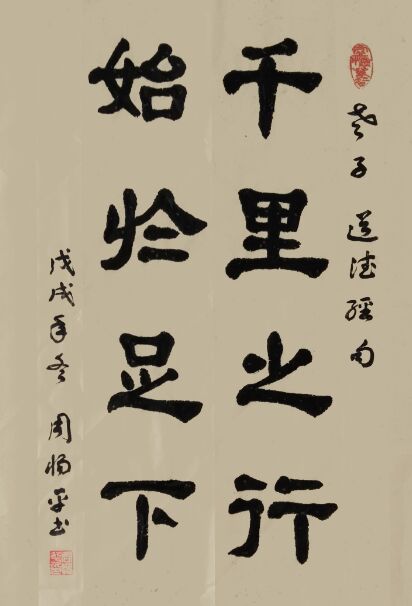 老子道德经句
千里之行
始於足下
戊戌年冬 周杨平书